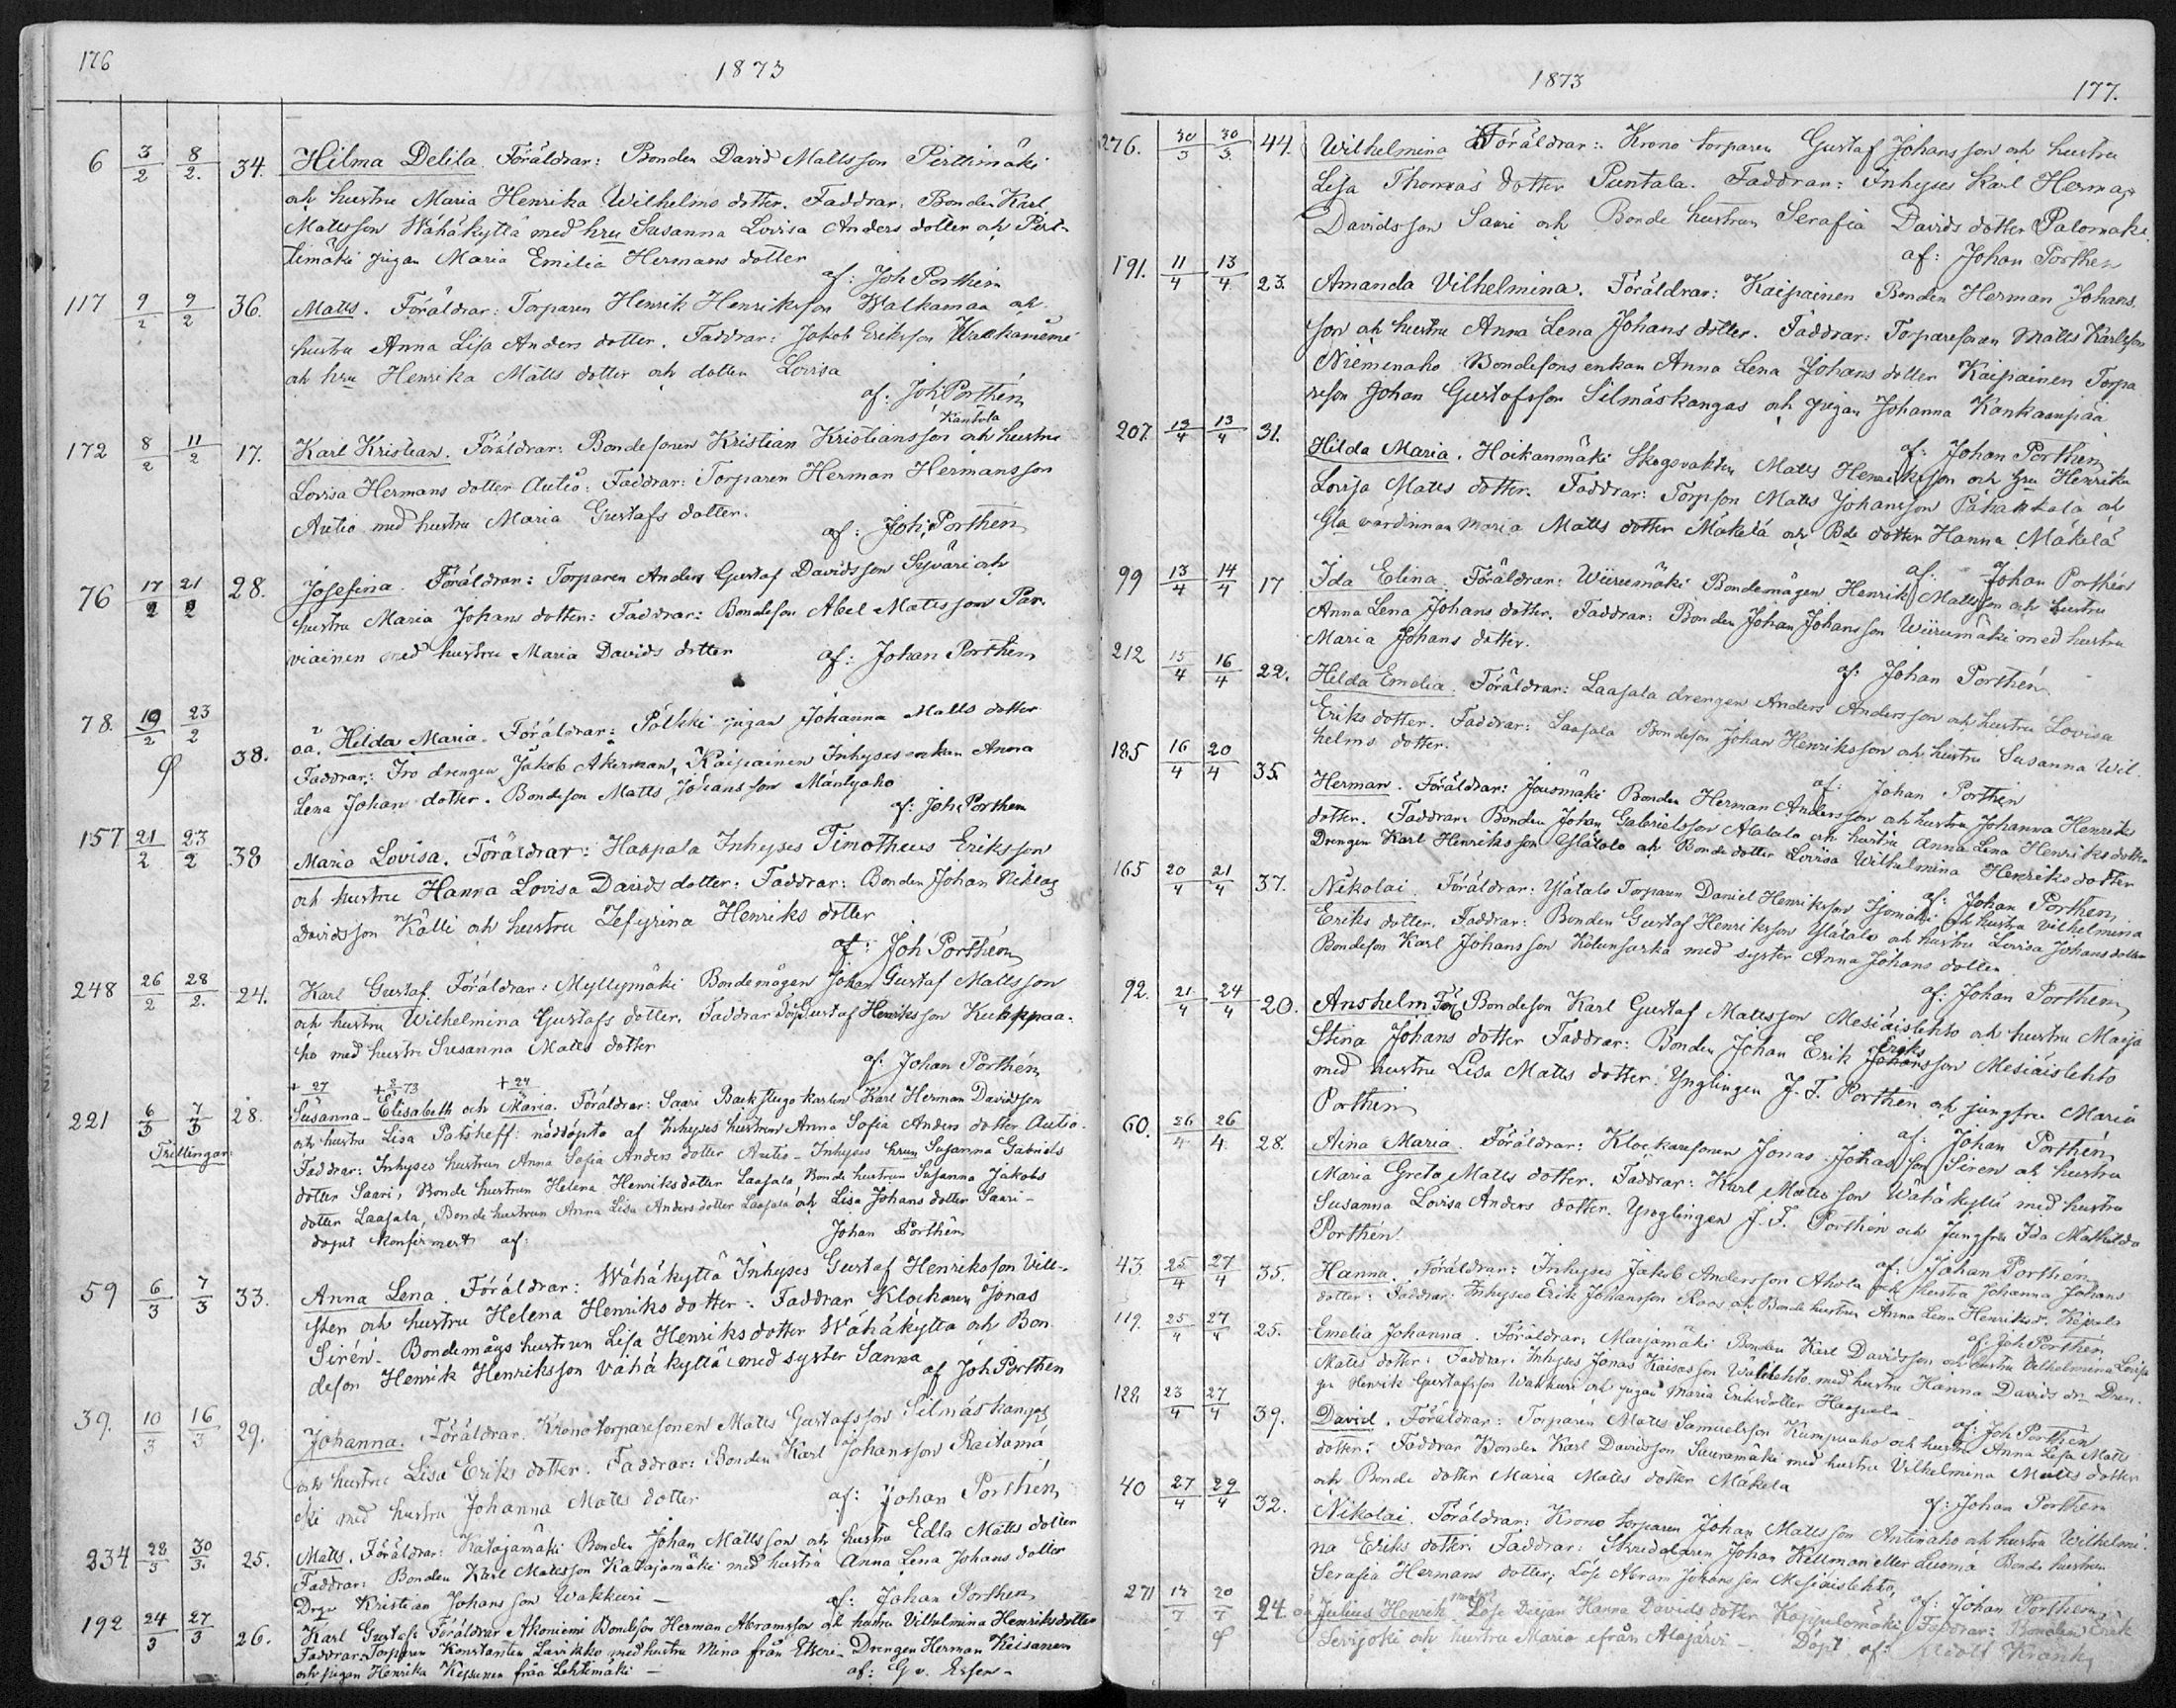 176
1873
6 3/2 8/2. 34. Hilma Delila. Föräldrar: Bonden David Mattsson Perttimäki
och hustru Maria Henrika Wilhelms dotter. Faddrar. Bonden Karl
Mattsson Wähäkyttä med hru Susanna Lovisa Anders dotter och Pert-
timäki pigan Maria Emilia Hermans dotter
af: Joh Porthén
117 9/2 9/2 36. Matts. Föräldrar: Torparen Henrik Henriksson Walkamaa och
hustru Anna Lisa Anders dotter. Faddrar: Jakob Eriksson
och hru Henrika Matts dotter och dotter Lovisa
af: Joh Porthén
Kantola
172 8/2 11/2 17. Karl Kristian. Föräldrar: Bondesonen Kristian Kristiansson och hustru
Lovisa Hermans dotter Autio: Faddrar: Torparen Herman Hermansson
Autio med hustru Maria Gustafs dotter.
af: Joh. Porthén
76 17/2 21/2 28. Josefina. Föräldrar: Torparen Anders Gustaf Davidsson Syväri och
hustru Maria Johans dotter: Faddrar: Bondeson Abel Mattsson Par-
viainen med hustru Maria Davids dotter
af: Johan Porthén
78. 19/2 23/2 38. oä. Hilda Maria. Föräldrar: Pölkki pigan Johanna Matts dotter
Faddrar: Iro drengen Jakob Åkerman, Kaipainen Inhyses enkan Anna
Lena Johans dotter. Bondeson Matts Johansson Mäntyaho
af: Joh. Porthén
157 21/2 23/2 38 Maria Lovisa. Föräldrar: Haapala Inhyses Timotheus Eriksson
och hustru Hanna Lovisa Davids dotter: Faddrar: Bonden Johan Niklas
Davidsson Källi och hustru Zefyrina Henriks dotter
af: Joh Porthén
248 26/2 28/2. 24. Karl Gustaf. Föräldrar: Myllymäki Bondemågen Johan Gustaf Mattsson
och hustru Wilhelmina Gustafs dotter. Faddrar Torp Gustaf Henriksson Kukkpaa-
ho med hustru Susanna Matts dotter
af: Johan Porthén
221 6/3 7/3 28. Susanna - Elisabeth och Maria. Föräldrar: Saari Backstugo karlen Karl Herman Davidsson
och hustru Lisa Potsheff: nöddöpta af Inhyses hustrun Anna Sofia Anders dotter Autio.
Trillingar
Faddrar: Inhyses hustrun Anna Sofia Anders dotter Autio - Inhyses hrun Susanna Gabriels
dotter Saari, Bonde hustrun Helena Henriksdotter Laasala Bonde hustrun Susanna Jakobs
dotter Laasala, Bonde hustrun Anna Lisa Anders dotter Laasala och Lisa Johans dotter Saari -
dopet konfirmert af:
Johan Porthén
59 6/3 7/3 33. Anna Lena. Föräldrar: Wähäkyttä Inhyses Gustaf Henriksson Vill-
sten och hustru Helena Henriks dotter: Faddrar Klockaren Jonas
Sirén. Bondemågs hustrun Lisa Henriksdotter Wähäkyttä och Bon-
deson Henrik Henriksson Vähäkyttä med syster Sanna
af Joh Porthén
39. 10/3 16/3 29. Johanna. Föräldrar. Kronotorparesonen Matts Gustafsson Silmäskangas
och hustru Lisa Eriks dotter. Faddrar: Bonden Karl Johansson Raitamä
ki med hustru Johanna Matts dotter
af: Johan Porthén
234 28/3 30/3. 25. Matts. Föräldrar: Katajamäki Bonden Johan Mattsson och hustru Edla Matts dotter
Faddrar: Bonden Karl Mattsson Katajamäki med hustru Anna Lena Johans dotter
Drge Kristian Johansson Wakkuri -
af: Johan Porthén
192 24/3 27/3 26. Karl Gustaf. Föräldrar Akoniemi Bondeson Herman Abramsson och hustru Vilhelmina Henriksdotter
Faddrar: Torparen Konstantin Lavikko med hustru Mina från Etseri - Drengen Herman Kiisanen
och pigan Henrika Kessunen från Lehtimäki -
af: G v. Essen -
1873
177.
276. 30/3 30/3. 44. Wilhelmina Föräldrar: Krono torparen Gustaf Johansson och hustru
Lisa Thomas dotter Puntala. Faddrar: Inhyses Karl Herman
Davidsson Saari och Bonde hustrun Serafia Davids dotter Palomäki
af: Johan Porthén
191. 11/4 13/4 23. Amanda Vilhelmina. Föräldrar: Kaipainen Bonden Herman Johans
son och hustru Anna Lena Johans dotter. Faddrar: Torparesonen Matts Karlsson
Niemenaho Bondesons enkan Anna Lena Johans dotter Kaipainen Torpa
reson Johan Gustafsson Silmäskangas och pigan Johanna Kankaanpää
af: Johan Porthén
207. 12/4 13/4 31. Hilda Maria. Hoikanmäki Skogsvakten Matts Henriksson och hru Henrika
Lovisa Matts dotter. Faddrar: Torpson Matts Johansson Pahankala och
Gla värdinnan Maria Matts dotter Mäkelä och Bde dotter Hanna Mäkelä
af: Johan Porthén
99 13/4 14/4 17 Ida Elina. Föräldrar: Wiirumäki Bondemågen Henrik Mattsson och hustru
Anna Lena Johans dotter. Faddrar: Bonden Johan Johansson Wiirumäki med hustru
Maria Johans dotter.
af: Johan Porthén
212 15/4 16/4 22. Hilda Emelia. Föräldrar: Laasala drengen Anders Andersson och hustru Lovisa
Eriks dotter. Faddrar: Laasala Bondeson Johan Henriksson och hustru Susanna Wil-
helms dotter.
af: Johan Porthén
185 16/4 20/4 35 Herman. Föräldrar: Jousmäki Bonden Herman Andersson och hustru Johanna Henriks
dotter. Faddrar: Bonden Johan Gabrielsson Alatalo och hustru Anna Lena Henriksdotter
Drengen Karl Henriksson Ylätalo och Bonde dotter Lovisa Wilhelmina Henriks dotter
af: Johan Porthén
165 20/4 21/4 37. Nikolai. Föräldrar: Ylätalo Torparen Daniel Henriksson Isomäki och hustru Vilhelmina
Eriks dotter. Faddrar: Bonden Gustaf Henriksson Ylätalo och hustru Lovisa Johans dotter
Bondeson Karl Johansson Kolunsarka med syster Anna Johans dotter
af: Johan Porthén
92. 21/4 24/4 20. Anshelm För Bondeson Karl Gustaf Mattsson Mesiäislehto och hustru Maija
Stina Johans dotter Faddrar: Bonden Johan Erik Eriksson Mesiäislehto
med hustru Lisa Matts dotter. Ynglingen J. F. Porthén och jungfru Maria
Porthén
af: Johan Porthén
60. 26/4 26/4. 28. Aina Maria. Föräldrar: Klockaresonen Jonas Johansson Siren och hustru
Maria Greta Matts dotter. Faddrar: Karl Mattsson Wähäkyttä med hustru
Susanna Lovisa Anders dotter. Ynglingen J. F. Porthén och Jungfru Ida Mathilda
Porthén.
af: Johan Porthén
43 25/4 27/4 35. Hanna. Föräldrar: Inhyses Jakob Andersson Ahola och hustru Johanna Johans
dotter: Faddrar: Inhyses Erik Johansson Roos och Bonde hustrun Anna Lena Henriksd.
af: Joh Porthén
119. 25/4 27/4 25. Emelia Johanna. Föräldrar: Marjamäki Bonden Karl Davidsson och hustru Vilhelmina Lovisa
Matts dotter: Faddrar: Inhyses Jonas Kaisasson med hustru Hanna Davids dr. Dren-
gen Henrik Gustafsson Wakkuri och pigan Maria Eriksdotter Haapala
af: Joh Porthén
128 23/4 27/4 39. David. Föräldrar: Torparen Matts Samuelsson Kumpuaho och hustru Anna Lisa Matts
dotter: Faddrar Bonden Karl Davidsson Sauramäki med hustru Vilhelmina Matts dotter
och Bonde dotter Maria Matts dotter Mäkelä
af: Johan Porthén
40 27/4 29/4 32. Nikolai. Föräldrar: Krono torparen Johan Mattsson Antinaho och hustru Wilhelmi-
na Eriks dotter. Faddrar: Skreddaren Johan Killman eller Luoma Bonde hustrun
Serafia Hermans dotter, Löse Abram Johansson Mesiäislehto,
af: Johan Porthén
271 14/7 20/7 24. oä Julius Henrik Löse Pigan Hanna Davids dotter Kappelomäki, Faddrar: Bonden Erik
Levijoki och hustru Maria från Alajärvi - Döpt af: Adolf Krank